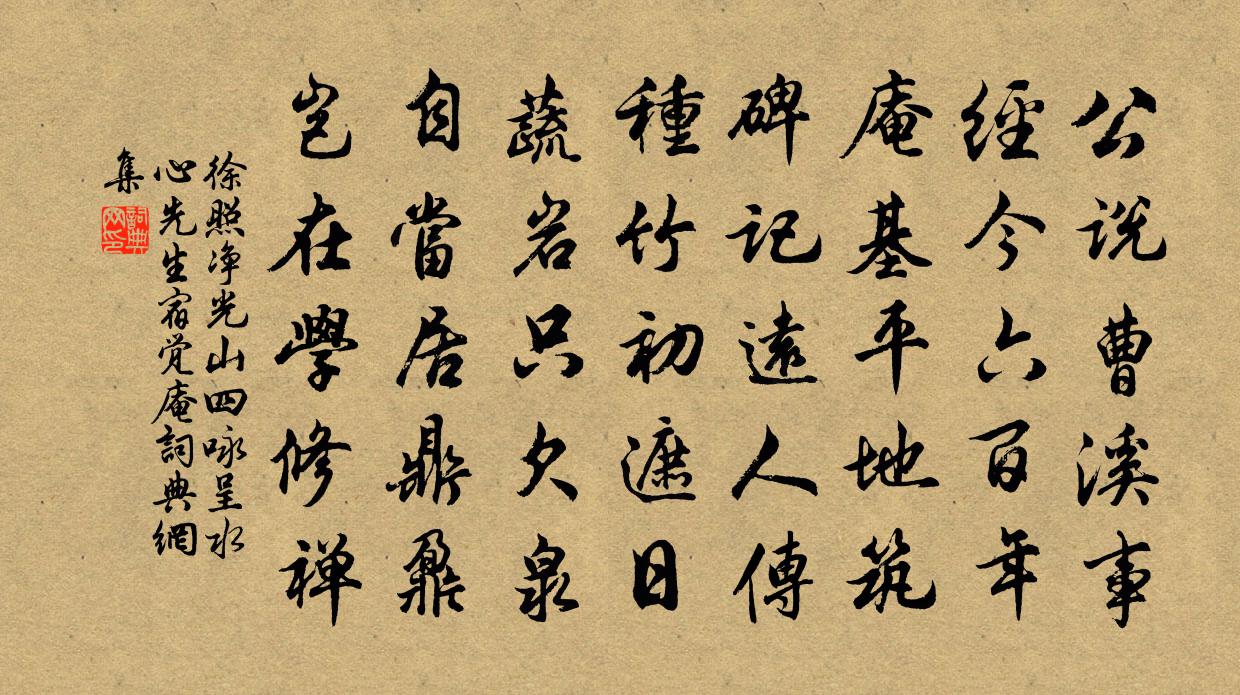 公説曹溪事
經今六百年
庵基平地筑
碑記遠人傳
種竹初遮日
蔬岩只欠泉
自當居鼎鼐
岂在學修禅
徐照净光山四咏呈水
心先生宿觉庵詞典網
集
詞典网印